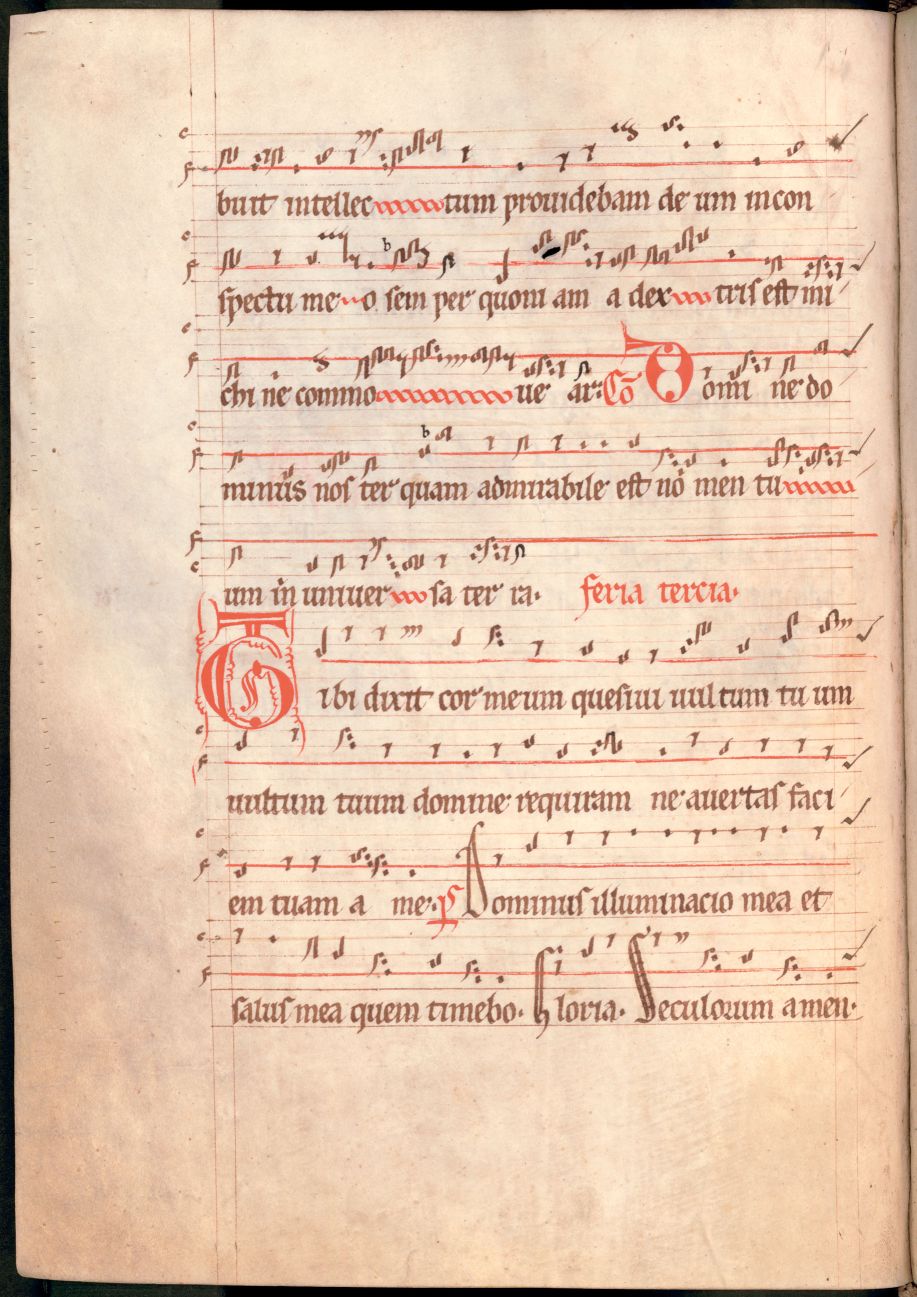 buit intellec tum prouidebam de um in con
spectu me o sem per quoni am a dex tris est mi
chi ne commo ue ar: Cō Domi ne do
minus nos ter quam admirabile est nō men tu
um in uniuer sa ter ra. feria tercia.
Tibi dixit cor meum quesiui uultum tu um
uultum tuum domine requiram ne auertas faci
em tuam a me. ps Dominus illuminacio mea et
salus mea quem timebo. Gloria. Seculorum amen.